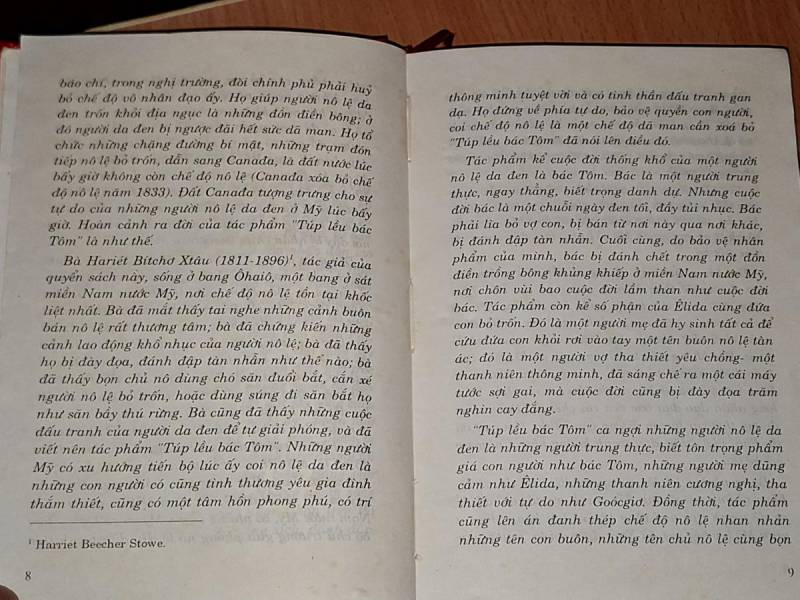 báo chí, trong nghị trường, đòi chính phủ phải huỷ
bỏ chế độ vô nhân đạo ấy. Họ giúp người nô lệ da
đen trốn khỏi địa ngục là những đồn điền bông; ở
đó người da đen bị ngược đãi hết sức dã man. Họ tổ
chức những chặng đường bí mật, những trạm đón
tiếp nô lệ bỏ trốn, dẫn sang Canada, là đất nước lúc
bấy giờ không còn chế độ nô lệ (Canada xóa bỏ chế
độ nô lệ năm 1833). Đất Canada tượng trưng cho sự
tự do của những người nô lệ da đen ở Mỹ lúc bấy
giờ. Hoàn cảnh ra đời của tác phẩm "Túp lều bác
Tôm" là như thế.
Bà Hariét Bítchơ Xtâu (1811-1896)¹, tác giả của
quyển sách này, sống ở bang Ôhaiô, một bang ở sát
miền Nam nước Mỹ, nơi chế độ nô lệ tồn tại khốc
liệt nhất. Bà đã mắt thấy tai nghe những cảnh buôn
bán nô lệ rất thương tâm; bà đã chứng kiến những
cảnh lao động khổ nhục của người nô lệ; bà đã thấy
họ bị đày đọa, đánh đập tàn nhẫn như thế nào; bà
đã thấy bọn chủ nô dùng chó săn đuổi bắt, cắn xé
người nô lệ bỏ trốn, hoặc dùng súng đi săn bắt họ
như săn bầy thú rừng. Bà cũng đã thấy những cuộc
đấu tranh của người da đen để tự giải phóng, và đã
viết nên tác phẩm "Túp lều bác Tôm". Những người
Mỹ có xu hướng tiến bộ lúc ấy coi nô lệ da đen là
những con người có cũng tình thương yêu gia đình
thắm thiết, cũng có một tâm hồn phong phú, có trí
¹ Harriet Beecher Stowe.
8
thông minh tuyệt vời và có tinh thần đấu tranh gan
dạ. Họ đứng về phía tự do, bảo vệ quyền con người,
coi chế độ nô lệ là một chế độ dã man cần xoá bỏ
"Túp lều bác Tôm" đã nói lên điều đó.
Tác phẩm kể cuộc đời thống khổ của một người
nô lệ da đen là bác Tôm. Bác là một người trung
thực, ngay thẳng, biết trọng danh dự. Nhưng cuộc
đời bác là một chuỗi ngày đen tối, đầy tủi nhục. Bác
phải lìa bỏ vợ con, bị bán từ nơi này qua nơi khác,
bị đánh đập tàn nhẫn. Cuối cùng, do bảo vệ nhân
phẩm của mình, bác bị đánh chết trong một đồn
điền trồng bông khủng khiếp ở miền Nam nước Mỹ,
nơi chôn vùi bao cuộc đời lầm than như cuộc đời
bác. Tác phẩm còn kể số phận của Êlida cùng đứa
con bỏ trốn. Đó là một người mẹ đã hy sinh tất cả để
cứu đứa con khỏi rơi vào tay một tên buôn nô lệ tàn
ác; đó là một người vợ tha thiết yêu chồng- một
thanh niên thông minh, đã sáng chế ra một cái máy
tước sợi gai, mà cuộc đời cũng bị đày đọa trăm
nghìn cay đắng.
"Túp lều bác Tôm" ca ngợi những người nô lệ da
đen là những người trung thực, biết tôn trọng phẩm
giá con người như bác Tôm, những người mẹ dũng
cảm như Êlida, những thanh niên cương nghị, tha
thiết với tự do như Goócgiơ. Đồng thời, tác phẩm
cũng lên án đanh thép chế độ nô lệ nhan nhản
những tên con buôn, những tên chủ nô lệ cùng bọn
9